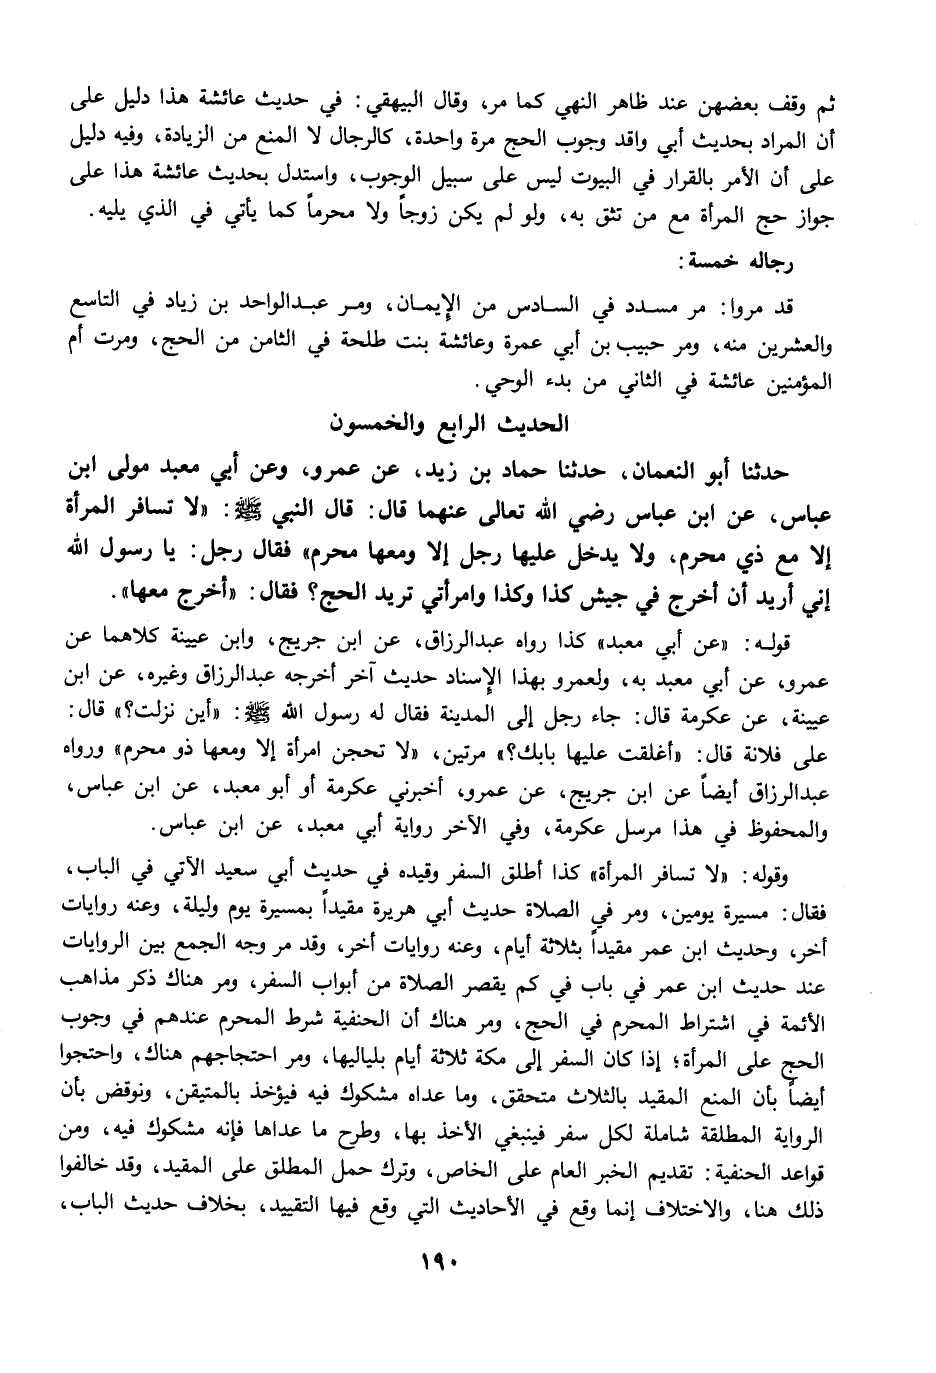 ثم وقف بعضهن عند ظاهر النهي كما مر، وقال البيهقي: في حديث عائشة هذا دليل على
أن المراد بحديث أبي واقد وجوب الحج مرة واحدة، كالرجال لا المنع من الزيادة، وفيه دليل
على أن الأمر بالقرار في البيوت ليس على سبيل الوجوب، واستدل بحديث عائشة هذا على
جواز حج المرأة مع من تثق به، ولو لم يكن زوجاً ولا محرماً كما يأتي في الذي يليه.
رجاله خمسة:
قد مروا: مر مسدد في السادس من الإيمان، ومر عبدالواحد بن زياد في التاسع
والعشرين منه، ومر حبيب بن أبي عمرة وعائشة بنت طلحة في الثامن من الحج، ومرت أم
المؤمنين عائشة في الثاني من بدء الوحي.
الحديث الرابع والخمسون
حدثنا أبو النعمان، حدثنا حماد بن زيد، عن عمرو، وعن أبي معبد مولى ابن
عباس، عن ابن عباس رضي الله تعالى عنهما قال: قال النبي ﷺ: «لا تسافر المرأة
إلا مع ذي محرم، ولا يدخل عليها رجل إلا ومعها محرم» فقال رجل: يا رسول الله
إني أريد أن أخرج في جيش كذا وكذا وامرأتي تريد الحج؟ فقال: «أخرج معها».
قوله: «عن أبي معبد» كذا رواه عبدالرزاق، عن ابن جريج، وابن عيينة كلاهما عن
عمرو، عن أبي معبد به، ولعمرو بهذا الإسناد حديث آخر أخرجه عبدالرزاق وغيره، عن ابن
عيينة، عن عكرمة قال: جاء رجل إلى المدينة فقال له رسول الله ﷺ: «أين نزلت؟» قال:
على فلانة قال: «أغلقت عليها بابك؟» مرتين، «لا تحجن امرأة إلا ومعها ذو محرم» ورواه
عبدالرزاق أيضاً عن ابن جريج، عن عمرو، أخبرني عكرمة أو أبو معبد، عن ابن عباس،
والمحفوظ في هذا مرسل عكرمة، وفي الآخر رواية أبي معبد، عن ابن عباس.
وقوله: «لا تسافر المرأة» كذا أطلق السفر وقيده في حديث أبي سعيد الآتي في الباب،
فقال: مسيرة يومين، ومر في الصلاة حديث أبي هريرة مقيداً بمسيرة يوم وليلة، وعنه روايات
أخر، وحديث ابن عمر مقيداً بثلاثة أيام، وعنه روايات أخر، وقد مر وجه الجمع بين الروايات
عند حديث ابن عمر في باب في كم يقصر الصلاة من أبواب السفر، ومر هناك ذكر مذاهب
الأئمة في اشتراط المحرم في الحج، ومر هناك أن الحنفية شرط المحرم عندهم في وجوب
الحج على المرأة؛ إذا كان السفر إلى مكة ثلاثة أيام بلياليها، ومر احتجاجهم هناك، واحتجوا
أيضاً بأن المنع المقيد بالثلاث متحقق، وما عداه مشكوك فيه فيؤخذ بالمتيقن، ونوقض بأن
الرواية المطلقة شاملة لكل سفر فينبغي الأخذ بها، وطرح ما عداها فإنه مشكوك فيه، ومن
قواعد الحنفية: تقديم الخبر العام على الخاص، وترك حمل المطلق على المقيد، وقد خالفوا
ذلك هنا، والاختلاف إنما وقع في الأحاديث التي وقع فيها التقييد، بخلاف حديث الباب،
١٩٠